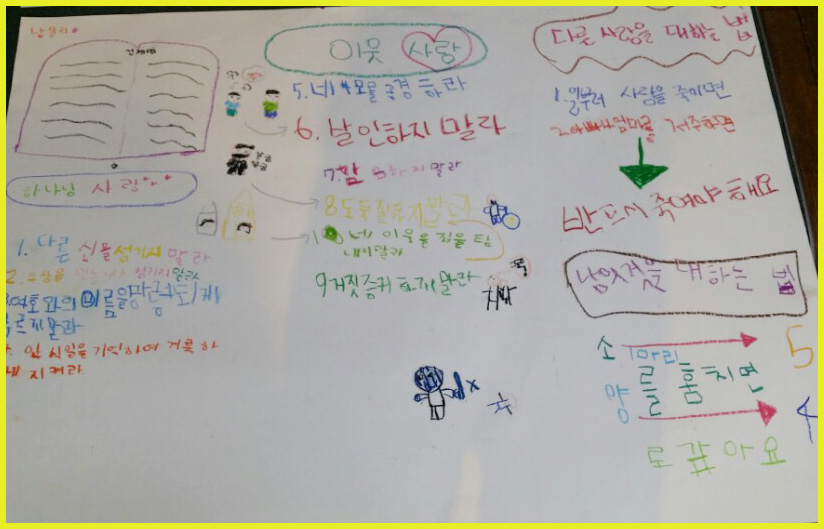 하나님 사랑
1. 다른 신을 섬기지 말라
2. 우상을 섬기지 말라
3. 여호와의 이름을 망령되이
부르지 말라
4. 안식일을 기억하여 거룩하
게 지켜라
이웃 사랑
5. 네 부모를 공경하라
6. 살인하지 말라
7. 하지 말라
8. 도둑질하지 말라
10 네 이웃을 집을 탐
내지 말라
9 거짓 증거 하지 말라
다른 사람을 대하는 법
1. 일부러 사람을 죽이면
2. 아빠 엄마를 저주하면
반드시 죽여야 해요
남의 것을 대하는 법
소 1마리 5
를 훔치면
양 4
로 갚아요